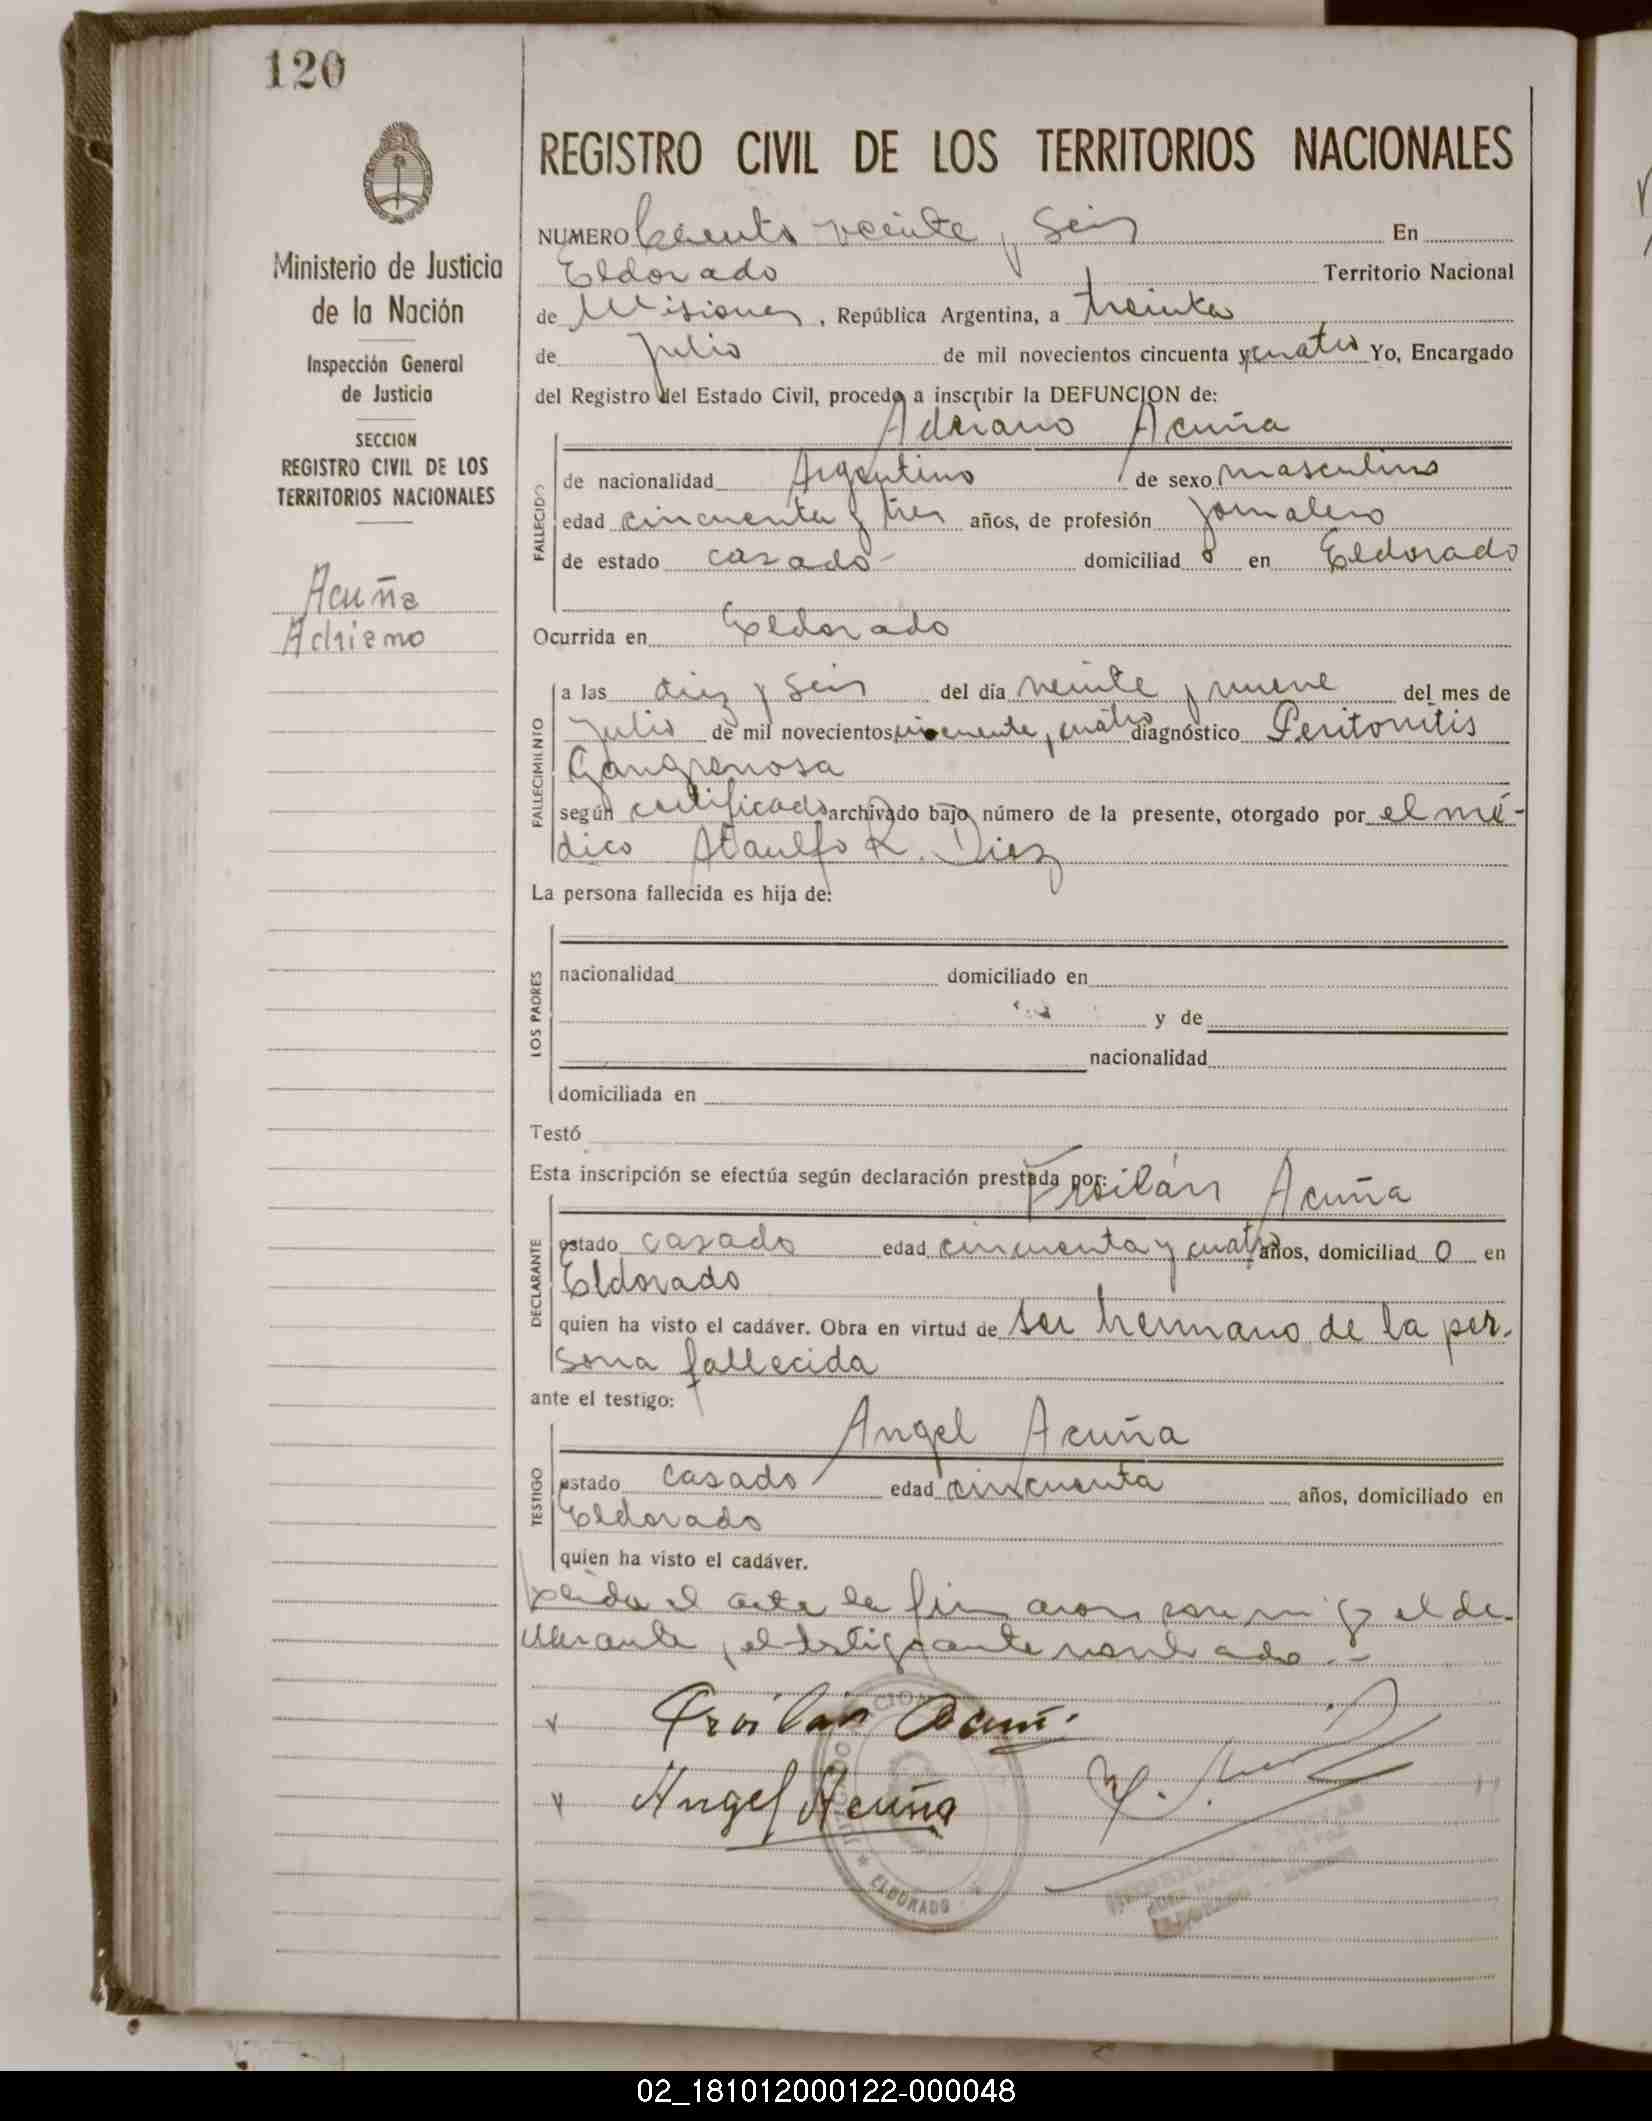 120
REGISTRO CIVIL DE LOS TERRITORIOS NACIONALES
Ministerio de Justicia
de la Nación
Inspección General
de Justicia
SECCION
REGISTRO CIVIL DE LOS
TERRITORIOS NACIONALES
Acuña
Adriano
NUMERO Ciento veinte y Seis En
Eldorado Territorio Nacional
de Misiones, República Argentina, a treinta
de Julio de mil novecientos cincuenta y cuatro Yo, Encargado
del Registro del Estado Civil, procedo a inscribir la DEFUNCION de:
Adriano Acuña
FALLECIDO
de nacionalidad Argentino de sexo masculino
edad cincuenta y tres años, de profesión Jornalero
de estado casado domiciliad o en Eldorado
Ocurrida en Eldorado
FALLECIMIENTO
a las diez y Seis del día veinte y nueve del mes de
Julio de mil novecientos cincuenta y cuatro diagnóstico Peritonitis
Gangrenosa
según certificado archivado bajo número de la presente, otorgado por el mé-
dico Ataulfo R. Diez
La persona fallecida es hija de:
LOS PADRES
nacionalidad domiciliado en
y de
nacionalidad
domiciliada en
Testó
Esta inscripción se efectúa según declaración prestada por:
Froilán Acuña
DECLARANTE
estado casado edad cincuenta y cuatro años, domiciliad o en
Eldorado
quien ha visto el cadáver. Obra en virtud de ser hermano de la per-
sona fallecida
ante el testigo:
Angel Acuña
TESTIGO
estado casado edad cincuenta años, domiciliado en
Eldorado
quien ha visto el cadáver.
Leída el acta la firmaron conmigo el de-
clarante y el testigo ante nombrado.-
Froilán Acuñ
Angel Acuña
ELDORADO
02_181012000122-000048